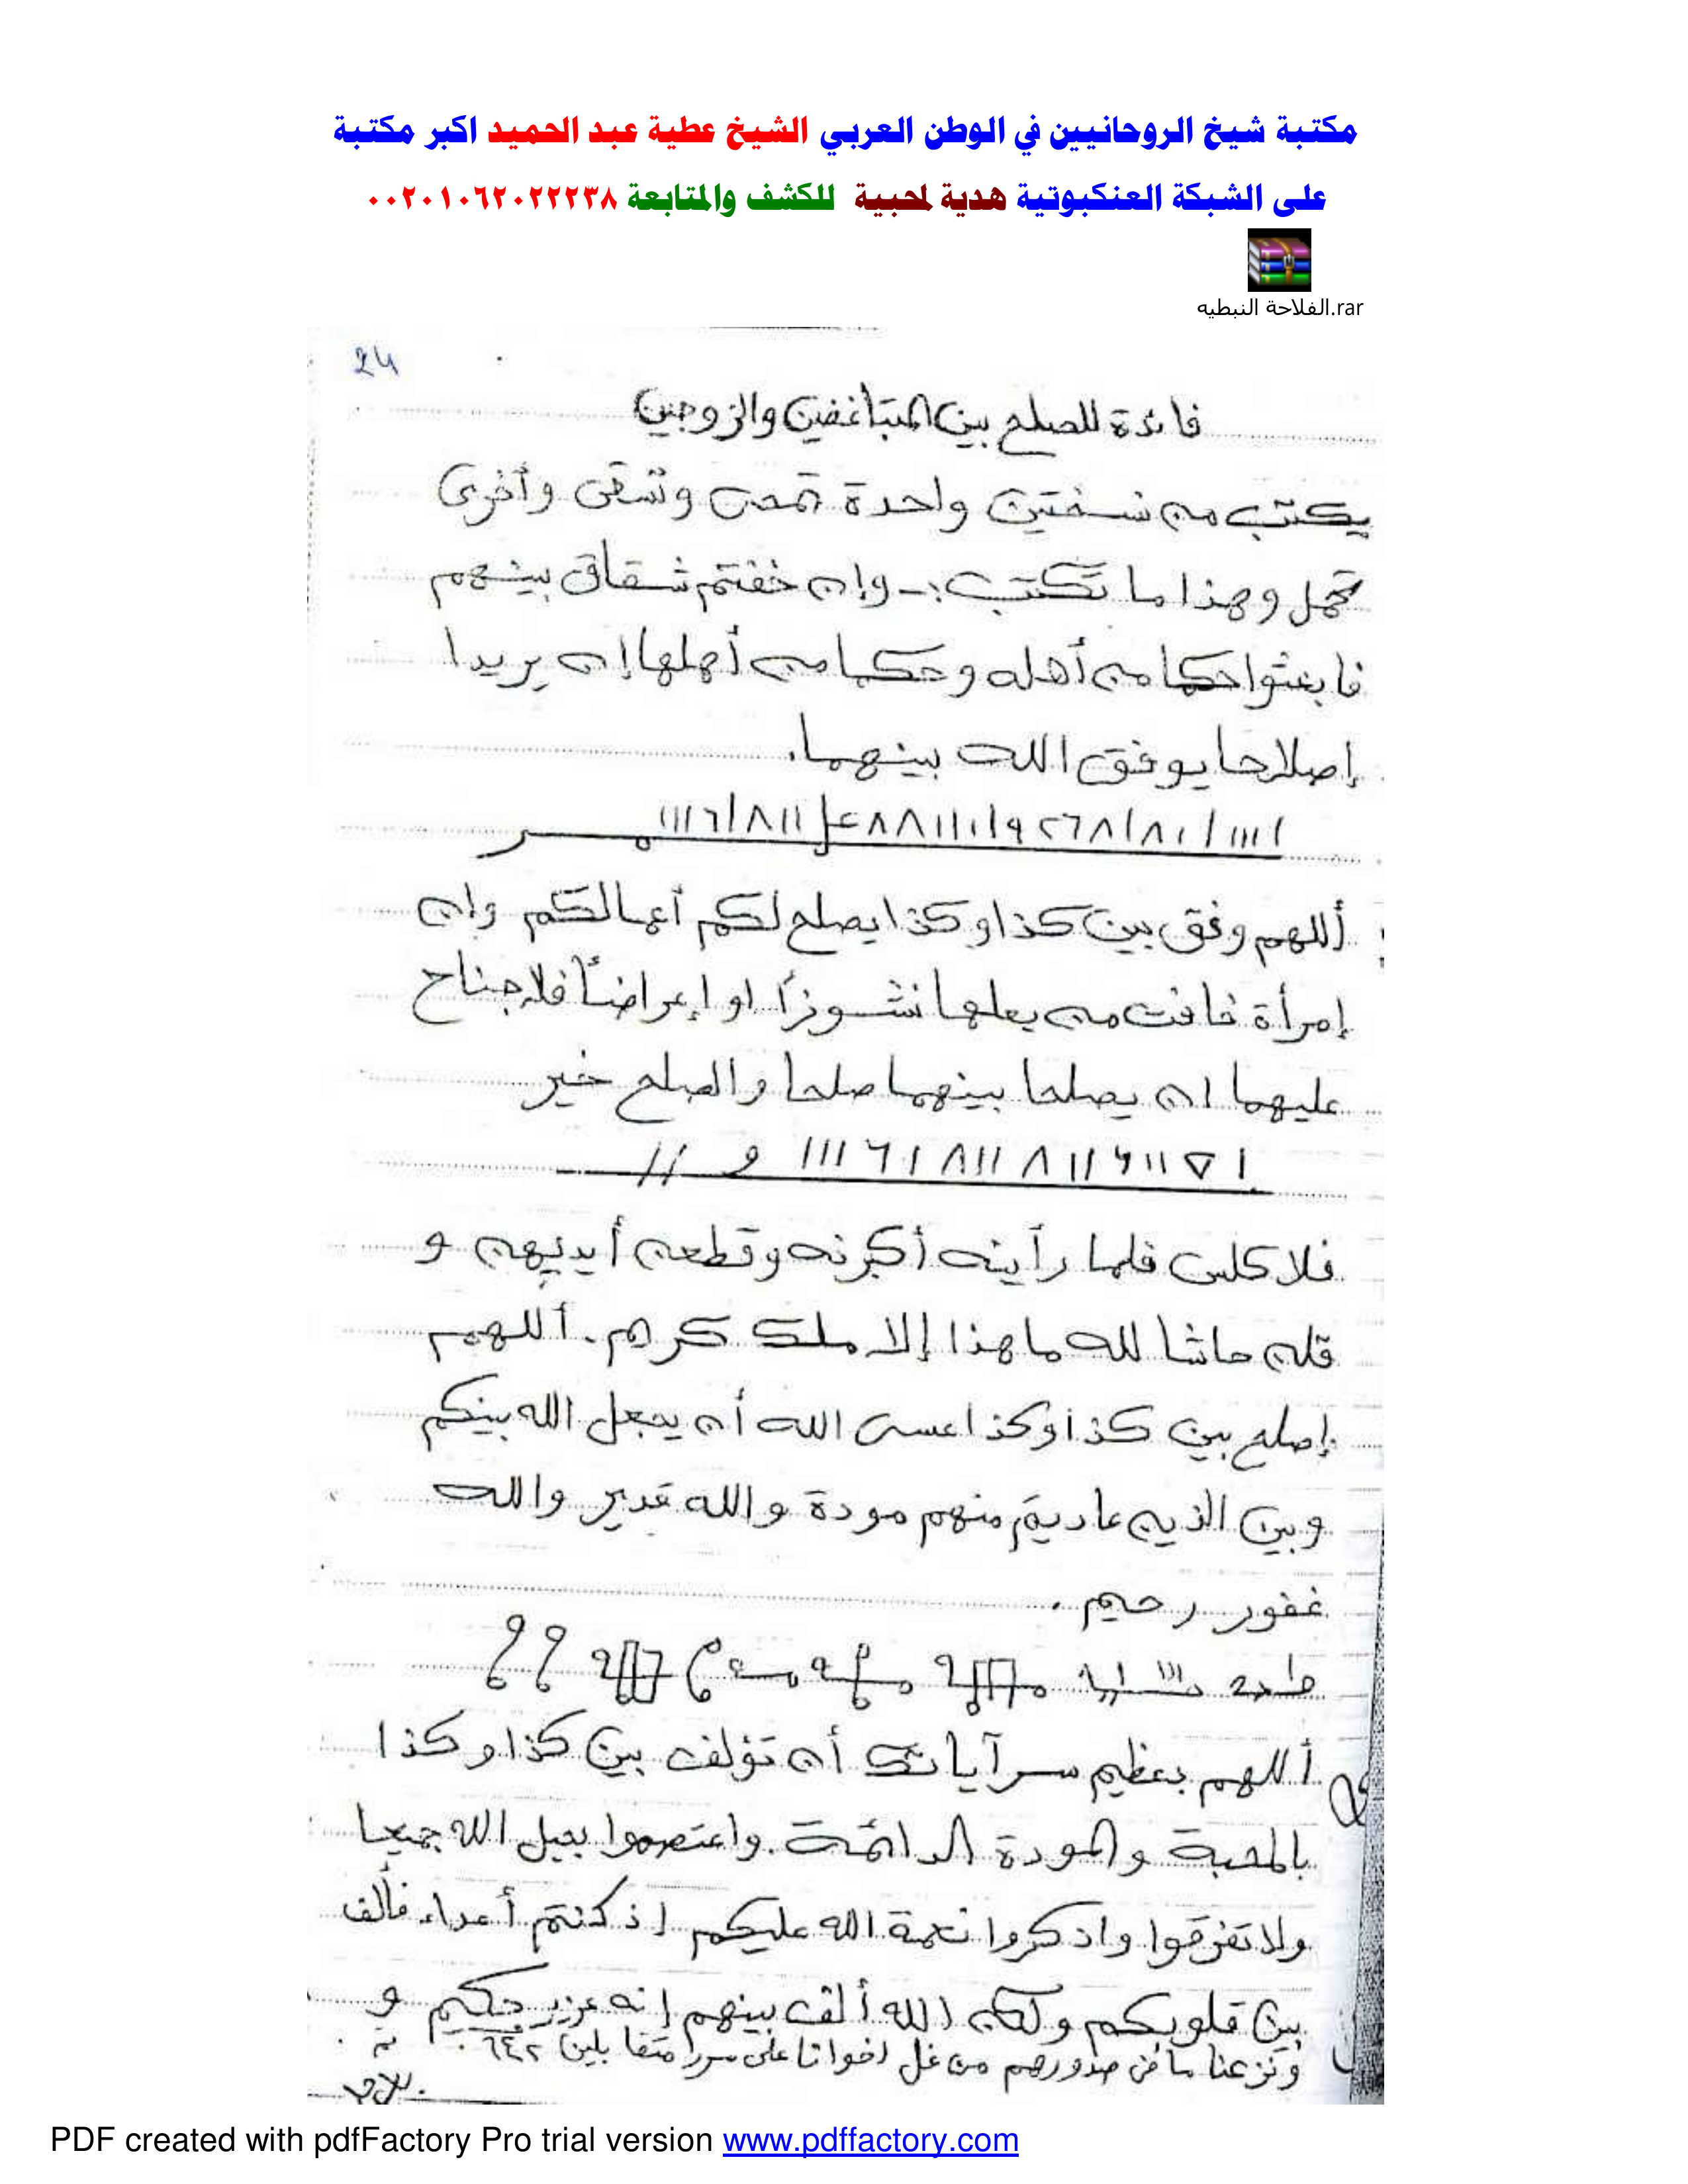 مكتبة شيخ الروحانيين في الوطن العربي الشيخ عطية عبد الحميد اكبر مكتبة
على الشبكة العنكبوتية هدية لمحبية للكشف والمتابعة ٠٠٢٠١٠٦٢٠٢٢٢٣٨
الفلاحة النبطيه.rar
24
فائدة للصلح بين المتباغضين والزوجين
يكتب من نسختين واحدة تمحى وتسقى وأخرى
تحمل وهذا ما تكتب :- وإن خفتم شقاق بينهم
فابعثوا حكما من أهله وحكما من أهلها إن يريدا
إصلاحا يوفق الله بينهما.
أللهم وفق بين كذا وكذا يصلح لكم أعمالكم وإن
إمرأة خافت من بعلها نشوزاً او إعراضاً فلا جناح
عليهما ان يصلحا بينهما صلحا والصلح خير
١١١٦١٨١١٨١١
فلا فلما رأينه أكبرنه وقطعن أيديهن و
قلن حاشا لله ما هذا إلا ملك كريم. أللهم
إصلح بين كذا وكذا عسى الله أن يجعل الله بينكم
وبين الذين عاديتم منهم مودة والله قدير والله
غفور رحيم.
أللهم بعظيم سر آياتك أن تؤلف بين كذا وكذا
بالمحبة والمودة الدائمة. واعتصموا بحبل الله جميعا
ولا تفرقوا واذكروا نعمة الله عليكم اذ كنتم أعداء فألف
بين قلوبكم ولكن الله ألف بينهم إنه عزيز حكيم و
ونزعنا ما فى صدورهم من غل اخوانا على سرر متقابلين ٦٤٢
PDF created with pdfFactory Pro trial version www.pdffactory.com